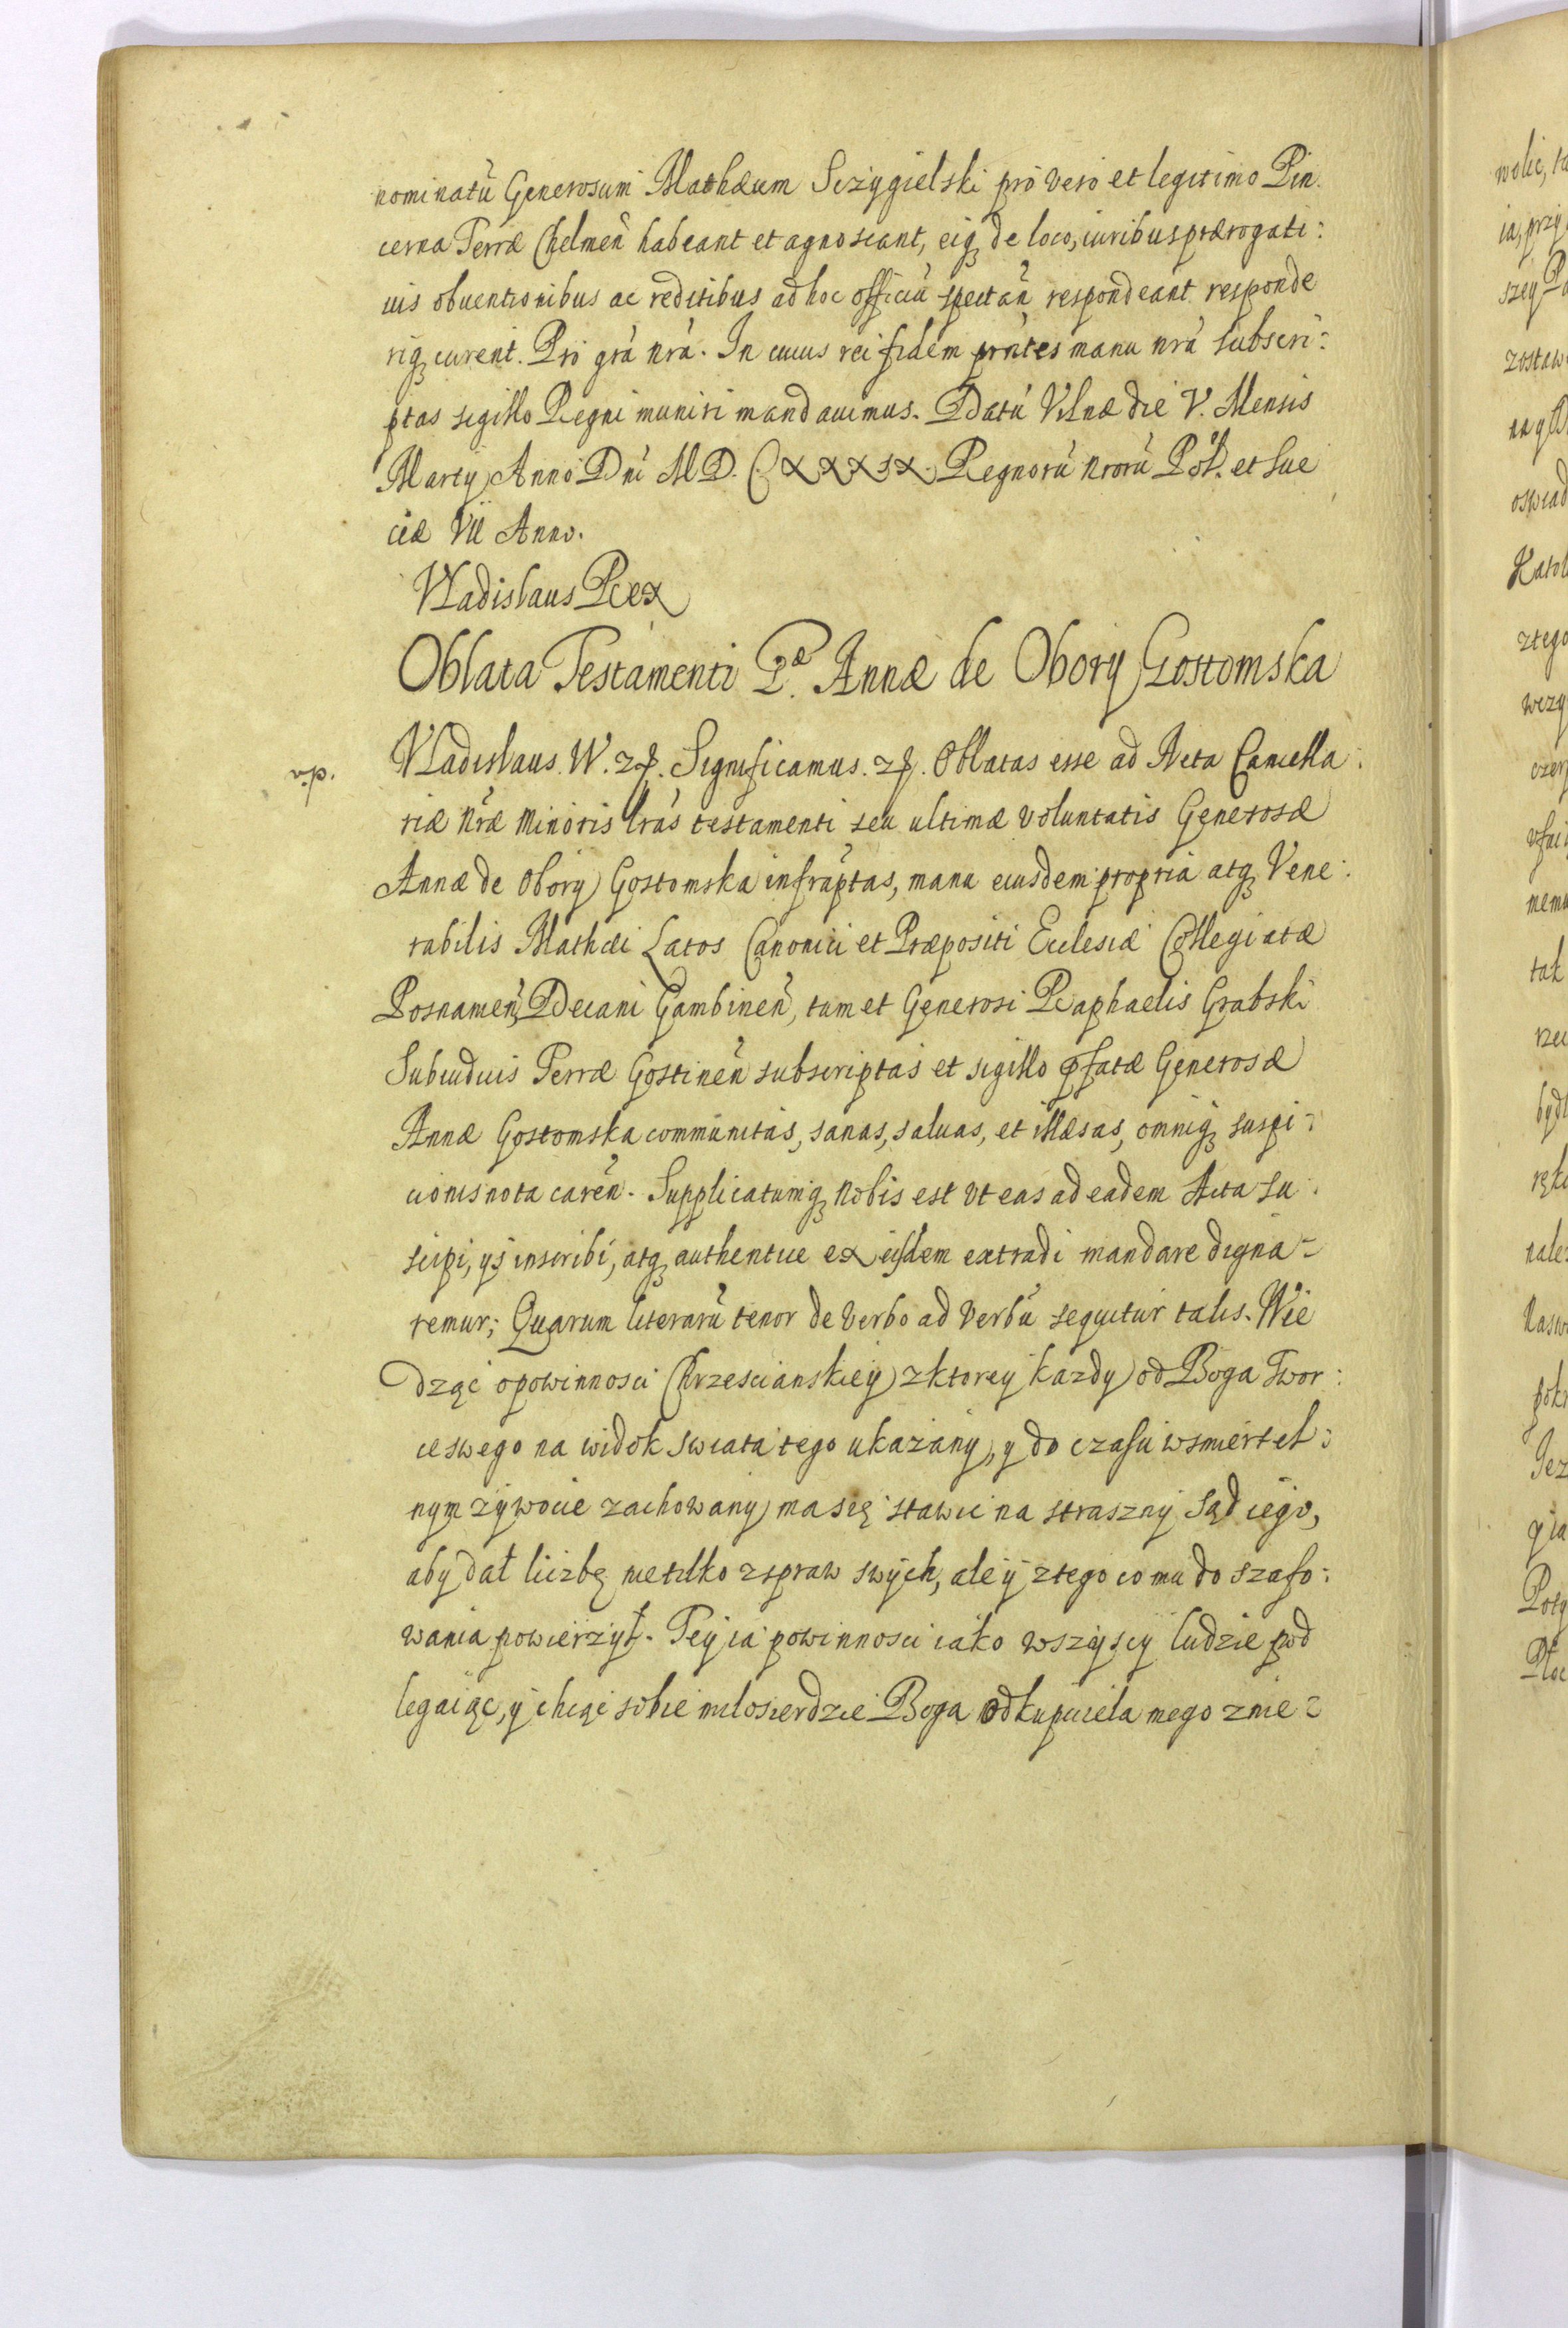 nominatũ Generosum Mathæum Sczygielski pro vero et legitimo Pin
cerna Terræ Chelmeñ habeant et agnoscant, eiq₃ de loco, iuribus prærogati:
uis obuentionibus ac reditibus ad hoc officiũ spectañ respondeant responde
riq₃ curent. Pro grã nrã. In cuius rei fidem prñtes manu nrã subscri:
ptas sigillo Regni muniri mandauimus. Datũ Vilnæ die V. Mensis
Martij Anno Dñi M D. C XXXIX. Regnorũ nrorũ Pol. et Sue
ciæ VII Anno.
Vladislaus Rex
Oblata Testamenti G.æ Annæ de Obory Gostomska
Vladislaus W. etc. Significamus. etc. Oblatas esse ad Acta Cancella:
riæ Nræ Minoris lrãs testamenti seu ultimæ voluntatis Generosæ
Annæ de Obory Gostomska infrãptas, manu eiusdem propria atq₃ Vene:
rabilis Mathæi Latos Canonici et Præpositi Ecclesiæ Collegiatæ
Posnameñ, Decani Gambineñ, tum et Generosi Raphaelis Grabski
Subiudicis Terræ Gostineñ subscriptas et sigillo pfatæ Generosæ
Annæ Gostomska communitas, sanas, saluas, et illæsas, omniq₃ suspi:
cionis nota careñ. Supplicatumq₃ Nobis est vt eas ad eadem Acta su
scipi, ijs inscribi, atq₃ authentice ex eisdem extradi mandare digna-
remur; Quarum literarũ tenor de verbo ad verbũ sequitur talis. Wie
dząc o powinnosci Chrzescianskiey z ktorey kazdy od Boga Twor:
ce swego na widok swiata tego ukazany, y do czasu w smiertel:
nym zywocie zachowany ma się stawic na straszny sąd iego,
aby dał liczbę nie tilko z spraw swych, ale y z tego co mu do szafo:
wania powierzył. Tey ia powinnosci iako wszyscy ludzie pod
legaiąc, y chcąc sobie milosierdzie Boga odkupiciela mego znie-